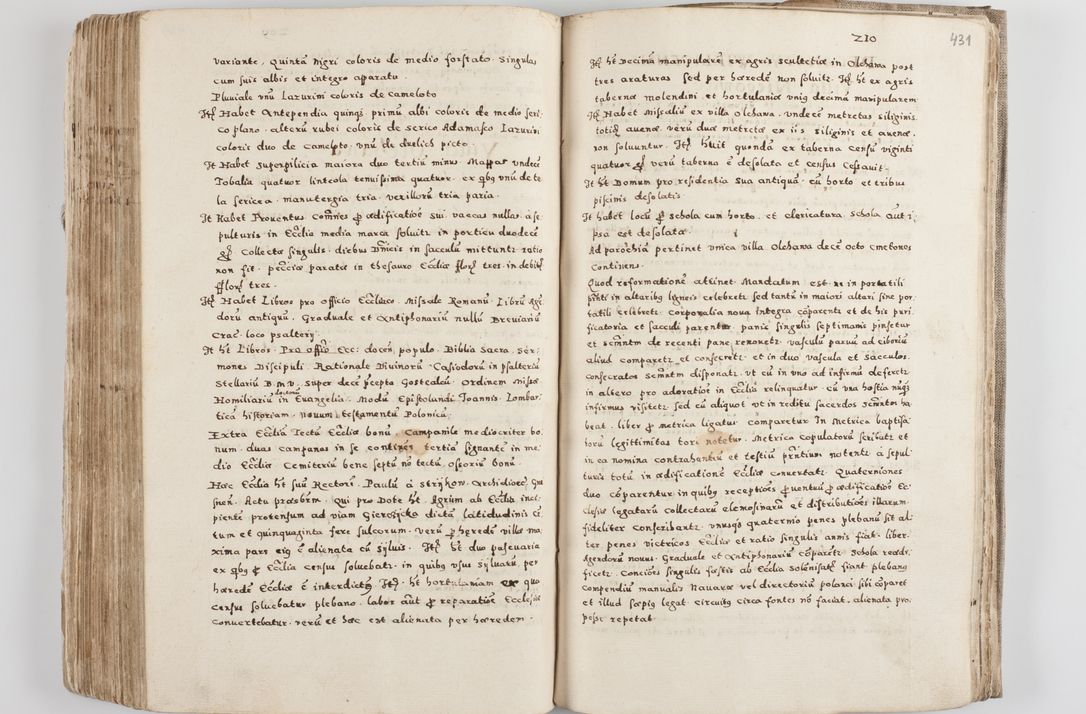 variante, quinta nigri coloris de medio forstato. singulas
cum suis albis et integro apparatu.
Pluviale vnū Lazurini coloris de cameloto
Itē Habet Antependia quinqꝫ primū albi coloris de medio seri:
co plano. alterū rubei coloris de serico Adamasco Lazurini
coloris duo de Cameloto. vnū de drelich picto.
It Habet superpilicia maiora duo tertiū minus. Mappas vndeci
Tobalia quatuor linteola tenuissima quatuor. ex qbꝫ vnū de te
la sericea. manutergia tria. vexillorū tria paria.
It Habet Prouentus coēs ꝑ ædificatiōe sui. vaccas nullas. a se
pulturis in Ecclīa media marca soluitr in porticu duodecē
gꝫ Collecta singulis diebus Dnicis in sacculū mittuntr ratio
non fit. pecciæ paratæ in thesauro Ecclīæ florꝫ tres. in debitꝫ
fflorꝫ tres.
Itē Habet Libros pro officio Ecclīastico. Missale Romanū. Librū Agē
dorū antiquū. Graduale et Antiphonariū nullū Breuiariū
Crac. loco psalterij.
It ht Libros. Pro offō Ecc: docen. populo. Biblia Sacra. Ser:
mones Discipuli. Rationale Diuinorū. Casiodorū in psalteriū
Stellariū B. M. V. super decē pcepta Gostcaleū Ordinem Missæ
Homiliariū in Euangelia. Modū Epistolandi Joannis. Lombar
ticā historiam. Nouum testamentū Polonicū.
Extra Ecclīā Tectū Ecclīæ bonū. Campanile mediocriter bo
num. duas campanas in se continēs tertia signante in me
dio Ecclīæ Cemiteriū bene septū nō tectū. Ossoriū bonū.
Hæc Ecclīa ht suū Rectorē. Paulū a strijkow. Archidiocē Gne
snen. Actu præsbrm. Qui pro Dote ht Agrum ab Ecclīa inci
piente protensum ad viam Gieroszicka dictā latidudinis cē
tum et quinquaginta fere sulcorum. verū ꝑ hæredē villæ ma
xima pars eiꝯ ē alienata cū syluis. Itē ht duo pascuaria
ex qbꝫ ꝑ Ecclīa census soluebatr. in quibꝫ vsus syluarū per
hæredē Ecclīæ ē interdictꝯ. Itē. ht hortulaniam ex quo
census soluebatur plebano. labor aūt ꝑ reparatiōe Ecclesiæ
Conuertebatur. verū et hæc est alienata per hæredem.
210
431
Itē ht Decimā manipularē ex agris scultetiæ in Olchawa post
tres araturas sed per hæredē non soluitr. Itē ht ex agris
tabernæ molendini et hortulaniæ vniꝯ decimā manipularem
Itē Habet Missaliū ex villa Olchawa. vndecē metretas siliginis
totidē auenæ. verū duæ metretæ ex iis siliginis et auenæ.
non soluuntur. Itē Huit quondā ex taberna censū viginti
quatuor gꝫ verū taberna ē desolata et census Cessauit.
It ht Domum pro residentia sua antiquā. cū horto et tribus
piscinis desolatis
It habet locū ꝑ schola cum horto. et clericatura. schola aūt i:
psa est desolata.
Ad parochiā pertinet vnica villa Olchawa decē octo cmetones
Continens.
Quod reformationē attinet Mandatum est. ne in portatili
pñti in altaribꝫ ligneis celebretr. sed tantū in maiori altari sine por
tatili celebretr. corporalia noua integra coparentr et de his puri
ficatoria et sacculi parentur. panis singulis septimanis pinsetur
et scrmntm de recenti pane renouetr. vasculū paruū ad ciboriū
aliud comparetr et consecretr. et in duo vascula et sacculos
consecratos scrmntm disponatr. vt cū in vno ad infirmū defertr
in altero pro adoratiōe in Ecclīa relinquatur. cū vna hostia nūqꝫ
infirmus visitetr sed cū aliquot vt in reditu sacerdos scrmntm ha
beat. liber ꝑ metrica ligatus comparetur In metrica baptisa
torū legittimitas tori notetur. Metrica Copulatorū scribatr et
in ea nomina contrahentiū et testiū pntium notentr. a sepul
turis totū in ædificatione Ecclīæ conuertatr. Quaterniones
duo coparentur in quibꝫ receptiōes ꝓuentuū ꝑ ædificatiōe Ec
clesiæ legatarū collectarū elemosinarū et distributiōes illarum
fideliter Conscribantr. vnusqꝫ quaternio penes plebanū sit al:
ter penes vitricos Ecclīæ et ratio singulis annis fiat. liber
Agendorū nouus. Graduale et Antiphonariū coparetr schola reædi:
ficetr. Conciōes singulis festis ab Ecclīa solēnisatꝫ fiant plebanꝯ
compendiū manualis Nauaræ vel directoriū polanci sibi coparet
et illud sæpiꝯ legat. circuitꝯ circa fontes nō faciat. alienata pro:
posse repetat.